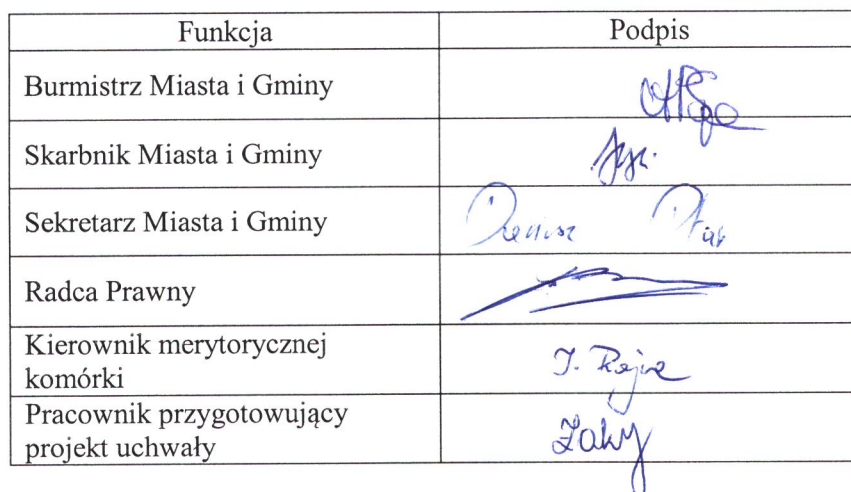 Funkcja Podpis
Burmistrz Miasta i Gminy
Skarbnik Miasta i Gminy
Sekretarz Miasta i Gminy Dariusz Ptak
Radca Prawny
Kierownik merytorycznej
komórki
Pracownik przygotowujący
projekt uchwały